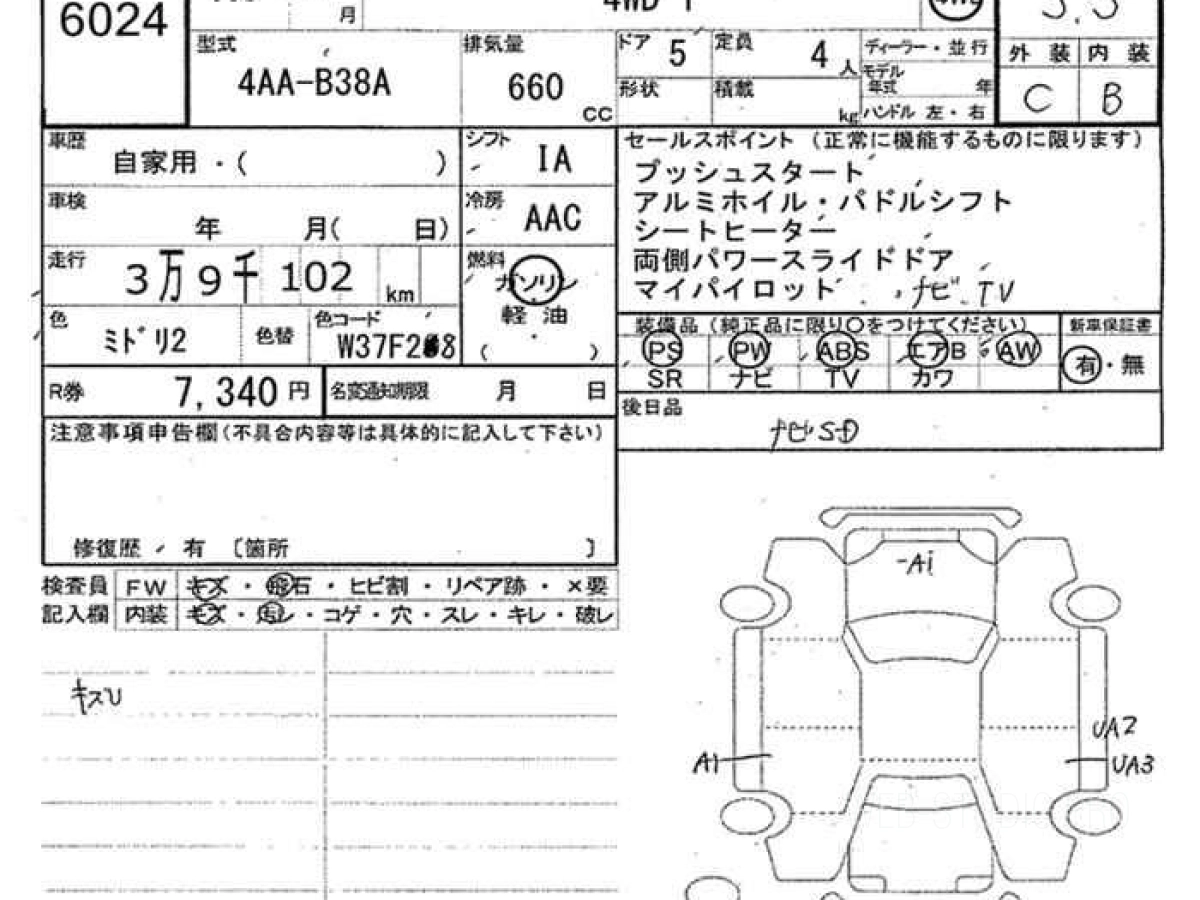 6024
月
型式
4AA-B38A
排気量
660
cc
ドア 5
定員 4 人
形状
積載
kg
ディーラー・並行
モデル年式 年
ハンドル 左・右
外装 内装
C B
車歴
自家用・( )
シフト
IA
車検
年 月( 日)
冷房
AAC
走行
3万9千102 km
燃料
ガソリン
軽油
( )
色
ミドリ2
色替
色コード
R券
7,340 円
名変通知期限 月 日
セールスポイント (正常に機能するものに限ります)
プッシュスタート
アルミホイル・パドルシフト
シートヒーター
両側パワースライドドア
マイパイロット ナビ TV
装備品 (純正品に限り○をつけてください)
新車保証書
PS PW ABS エアB AW
SR ナビ TV カワ
有・無
後日品
ナビSD
注意事項申告欄(不具合内容等は具体的に記入して下さい)
修復歴 有 〔箇所 〕
検査員 FW キズ・飛石・ヒビ割・リペア跡・×要
記入欄 内装 キズ・汚レ・コゲ・穴・スレ・キレ・破レ
キズU
A1
UA2
A1
UA3